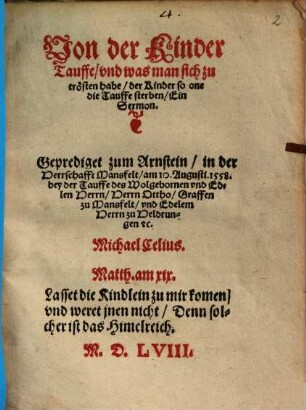 4.
2
Von der Kinder
Tauffe/vnd was man sich zu
trösten habe/der Kinder so one
die Tauffe sterben/Ein
Sermon.
Geprediget zum Arnstein/in der
Herrschafft Mansfelt/am 10. Augusti.1558.
bey der Tauffe des Wolgebornen vnd Ed-
len Herrn/Herrn Ottho/Graffen
zu Mansfelt/vnd Edelem
Herrn zu Heldrun-
gen &c.
Michael Celius.
Matth. am xix.
Lasset die Kindlein zu mir komen/
vnd weret jnen nicht/Denn sol-
cher ist das Himelreich.
M. D. LVIII.